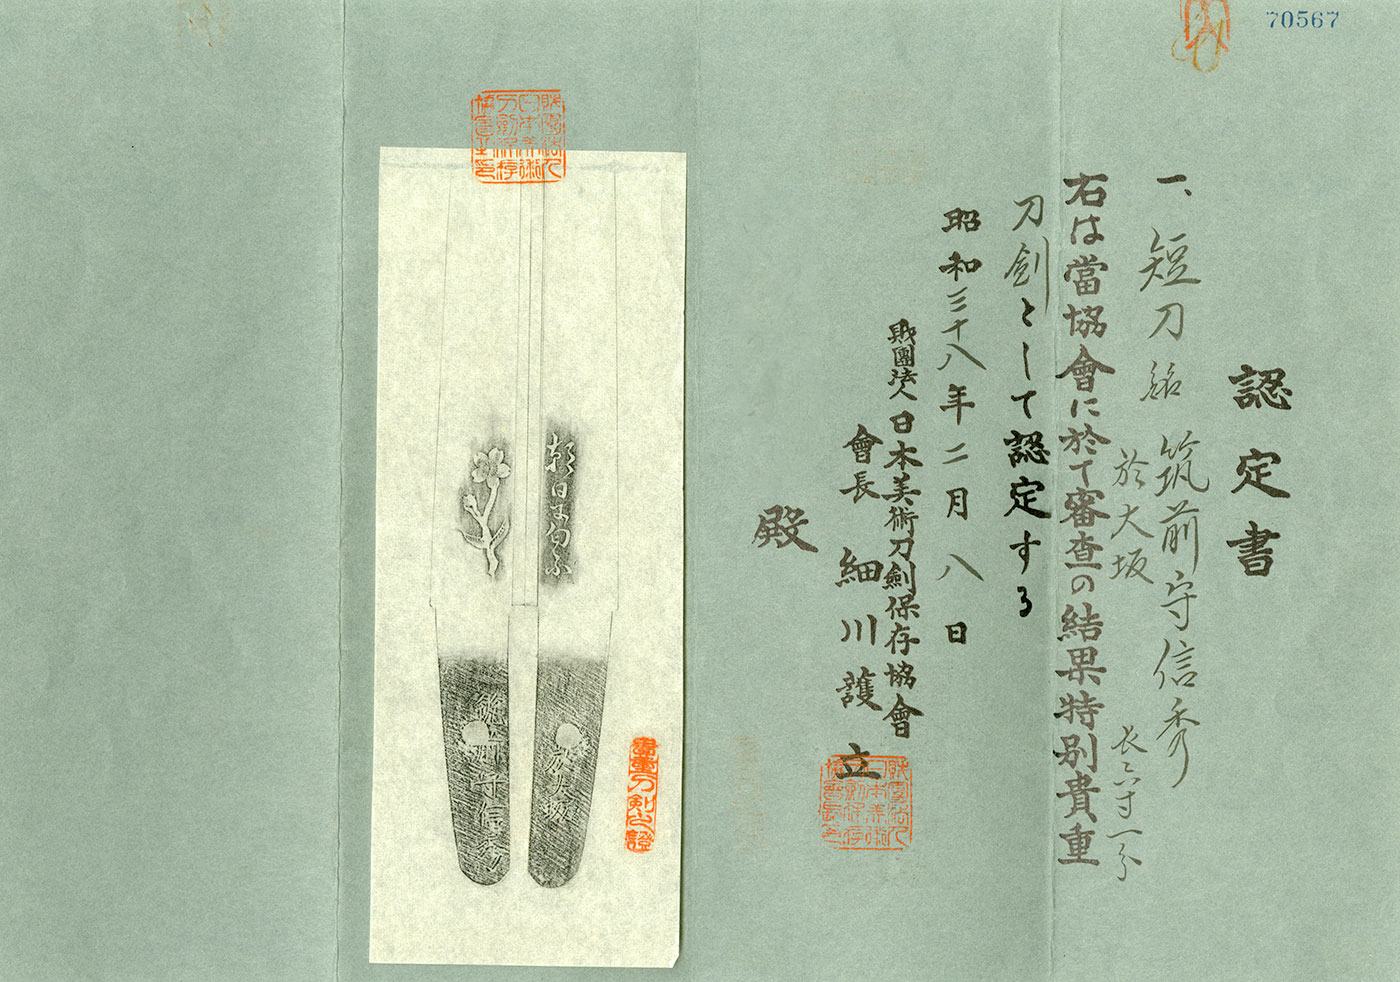 70567
認定書
一、短刀 銘 筑前守信秀
於大坂
長六寸一分
右は當協會に於て審査の結果特別貴重
刀劍として認定する
昭和三十八年二月八日
財團法人日本美術刀劍保存協會
會長 細川護立
殿
財團法人日本美術刀劍保存協會
貴重刀劍之證
朝日ににほふ
於大坂
筑前守信秀